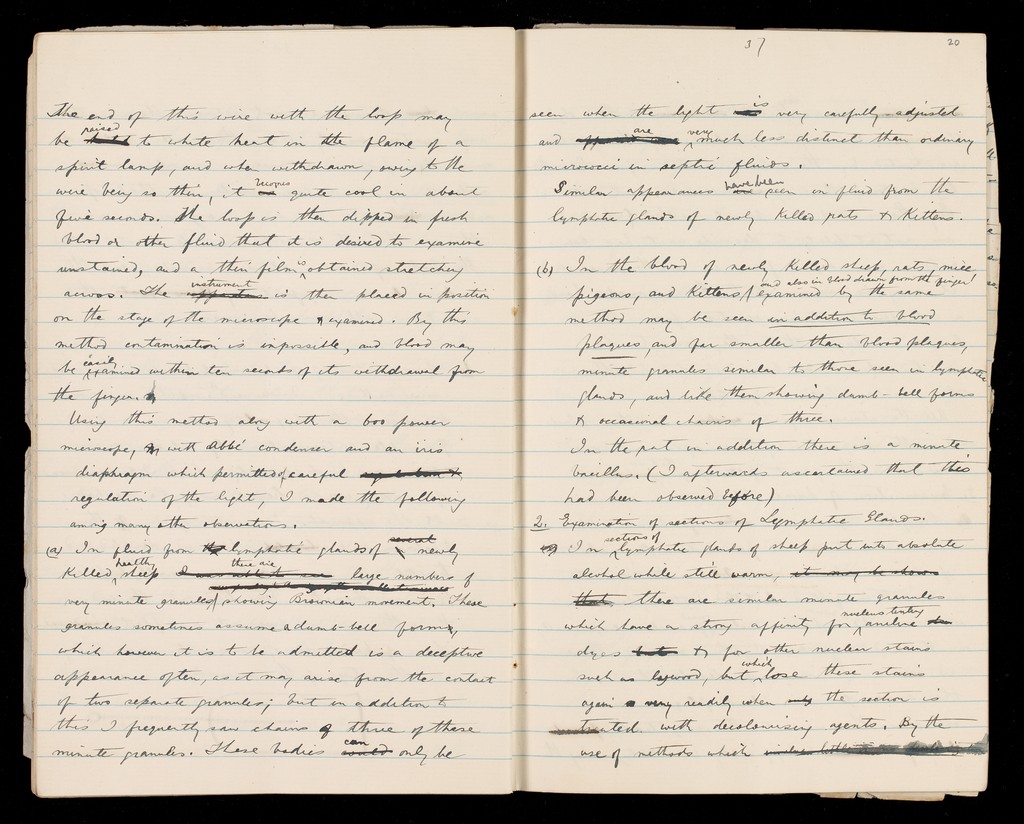 The end of this wire with the loop may
be raised to white heat in the flame of a
spirit lamp, and when withdrawn, owing to the
wire being so thin, it becomes quite cool in about
five seconds. The loop is then dipped in fresh
blood or other fluid that it is desired to examine
unstained, and a thin film is obtained stretching
across. The instrument is then placed in position
on the stage of the microscope & examined. By this
method contamination is impossible, and blood may
be easily examined within ten seconds of its withdrawal from
the finger.
Using this method along with a 600 power
microscope, with Abbé condenser and an iris
diaphragm which permitted of careful
regulation of the light, I made the following
among many other observations.
(a) In fluid from lymphatic glands of newly
killed healthy sheep there are large numbers of
very minute granules showing Brownian movement. These
granules sometimes assume a dumb-bell form,
which however it is to be admitted is a deceptive
appearance often, as it may arise from the contact
of two separate granules; but in addition to
this I frequently saw chains of three of these
minute granules. These bodies can only be
37
20
seen when the light is very carefully adjusted
and are very much less distinct than ordinary
micrococci in septic fluids.
Similar appearances have been seen in fluid from the
lymphatic glands of newly killed rats & kittens.
(b) In the blood of newly killed sheep, rats, mice
pigeons, and kittens, and also in blood drawn from the finger, examined by the same
method may be seen in addition to blood
plaques, and far smaller than blood plaques,
minute granules similar to those seen in lymphatic
glands, and like them showing dumb-bell forms
& occasional chains of three.
In the rat in addition there is a minute
bacillus. (I afterwards ascertained that this
had been observed before)
2. Examination of sections of Lymphatic Glands.
In sections of lymphatic glands of sheep put into absolute
alcohol while still warm,
there are similar minute granules
which have a strong affinity for nucleus-tinting aniline
dyes & for other nuclear stains
such as logwood, but which lose these stains
again very readily when the section is
treated with decolourising agents. By the
use of methods which